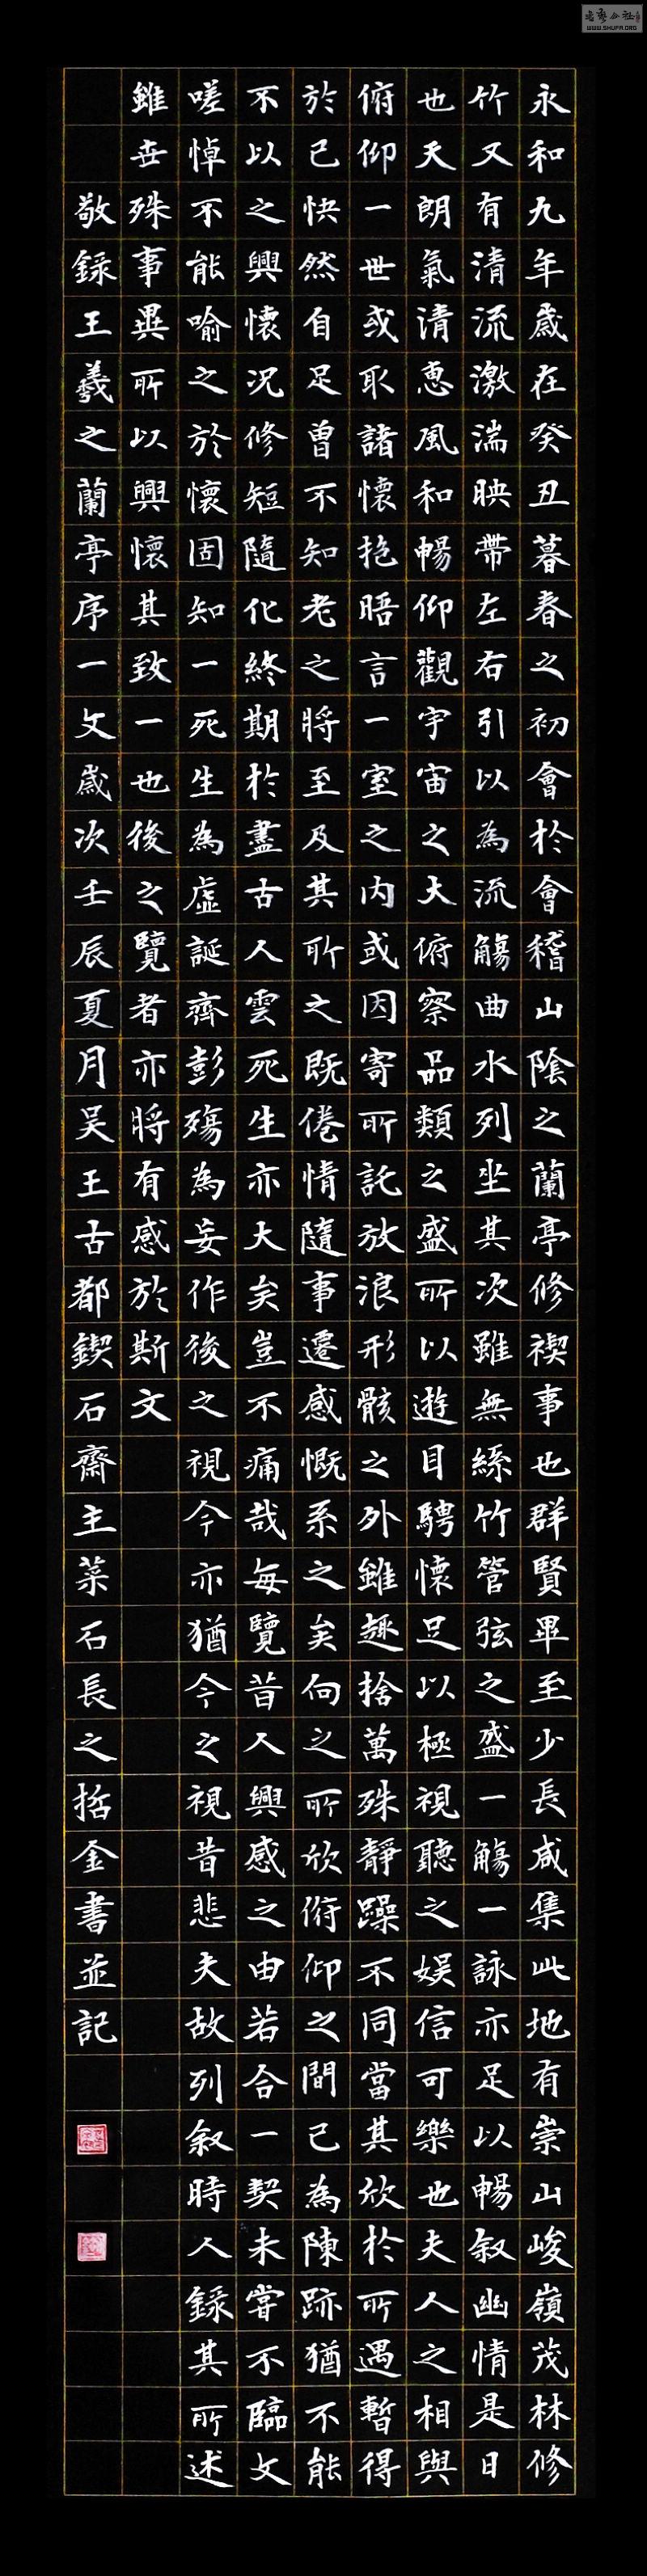 永和九年歲在癸丑暮春之初會於會稽山陰之蘭亭修禊事也群賢畢至少長咸集此地有崇山峻嶺茂林修
竹又有清流激湍映帶左右引以為流觴曲水列坐其次雖無絲竹管弦之盛一觴一詠亦足以暢叙幽情是日
也天朗氣清惠風和暢仰觀宇宙之大俯察品類之盛所以遊目騁懷足以極視聽之娛信可樂也夫人之相與
俯仰一世或取諸懷抱晤言一室之内或因寄所託放浪形骸之外雖趣捨萬殊靜躁不同當其欣於所遇暫得
於己快然自足曾不知老之將至及其所之既倦情隨事遷感慨系之矣向之所欣俯仰之間已為陳跡猶不能
不以之興懷況修短隨化終期於盡古人雲死生亦大矣豈不痛哉每覽昔人興感之由若合一契未嘗不臨文
嗟悼不能喻之於懷固知一死生為虛誕齊彭殤為妄作後之視今亦猶今之視昔悲夫故列叙時人錄其所述
雖世殊事異所以興懷其致一也後之覽者亦將有感於斯文
敬錄王羲之蘭亭序一文歲次壬辰夏月吴王古都鍥石齋主菜石長之括金書並記
WWW.SHUFA.ORG